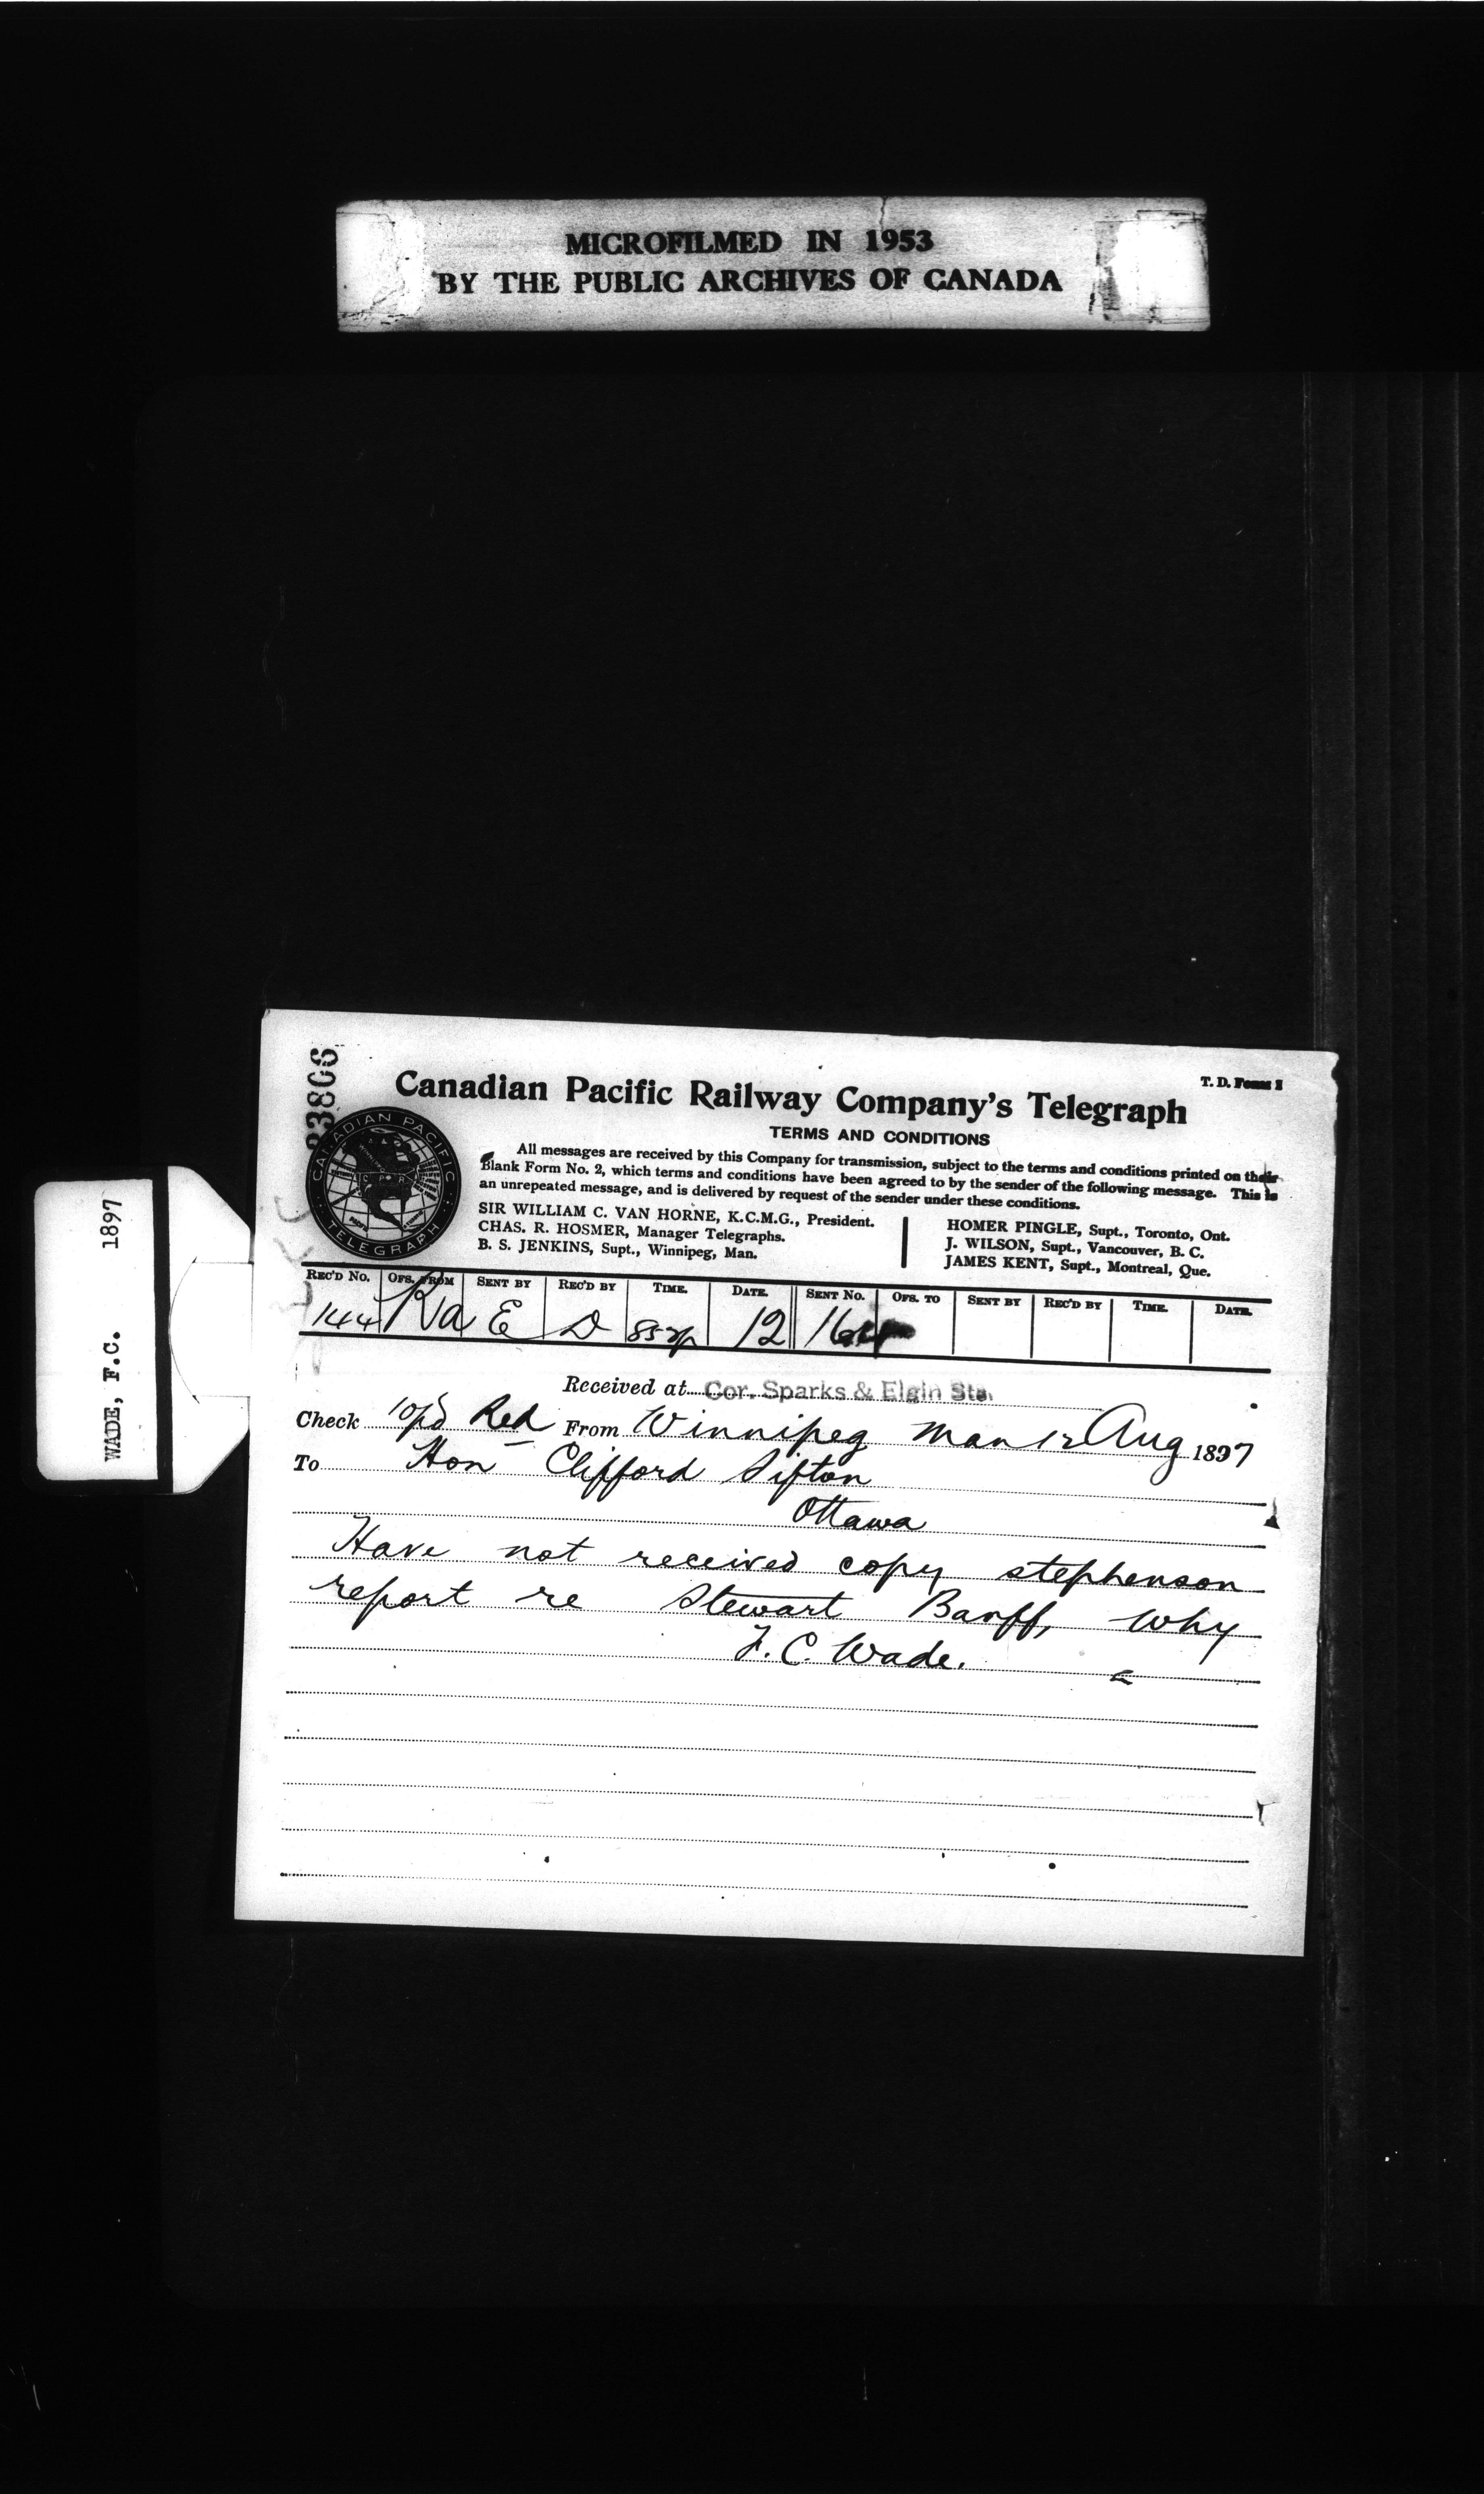 MICROFILMED IN 1953
BY THE PUBLIC ARCHIVES OF CANADA
WADE, F.C. 1897
T. D. Form 1
Canadian Pacific Railway Company's Telegraph
TERMS AND CONDITIONS
All messages are received by this Company for transmission, subject to the terms and conditions printed on their
Blank Form No. 2, which terms and conditions have been agreed to by the sender of the following message. This is
an unrepeated message, and is delivered by request of the sender under these conditions.
SIR WILLIAM C. VAN HORNE, K.C.M.G., President.
CHAS. R. HOSMER, Manager Telegraphs.
B. S. JENKINS, Supt., Winnipeg, Man.
HOMER PINGLE, Supt., Toronto, Ont.
J. WILSON, Supt., Vancouver, B. C.
JAMES KENT, Supt., Montreal, Que.
CANADIAN PACIFIC
TELEGRAPH
REC'D No. OFS. FROM SENT BY REC'D BY TIME. DATE. SENT No. OFS. TO SENT BY REC'D BY TIME. DATE.
144 Ra E D 12
Received at Cor. Sparks & Elgin Sts.
Check 10pd Red From Winnipeg Man 12 Aug 1897
To Hon Clifford Sifton
Ottawa
Have not received copy stephenson
report re Stewart Banff, Why
F. C. Wade.